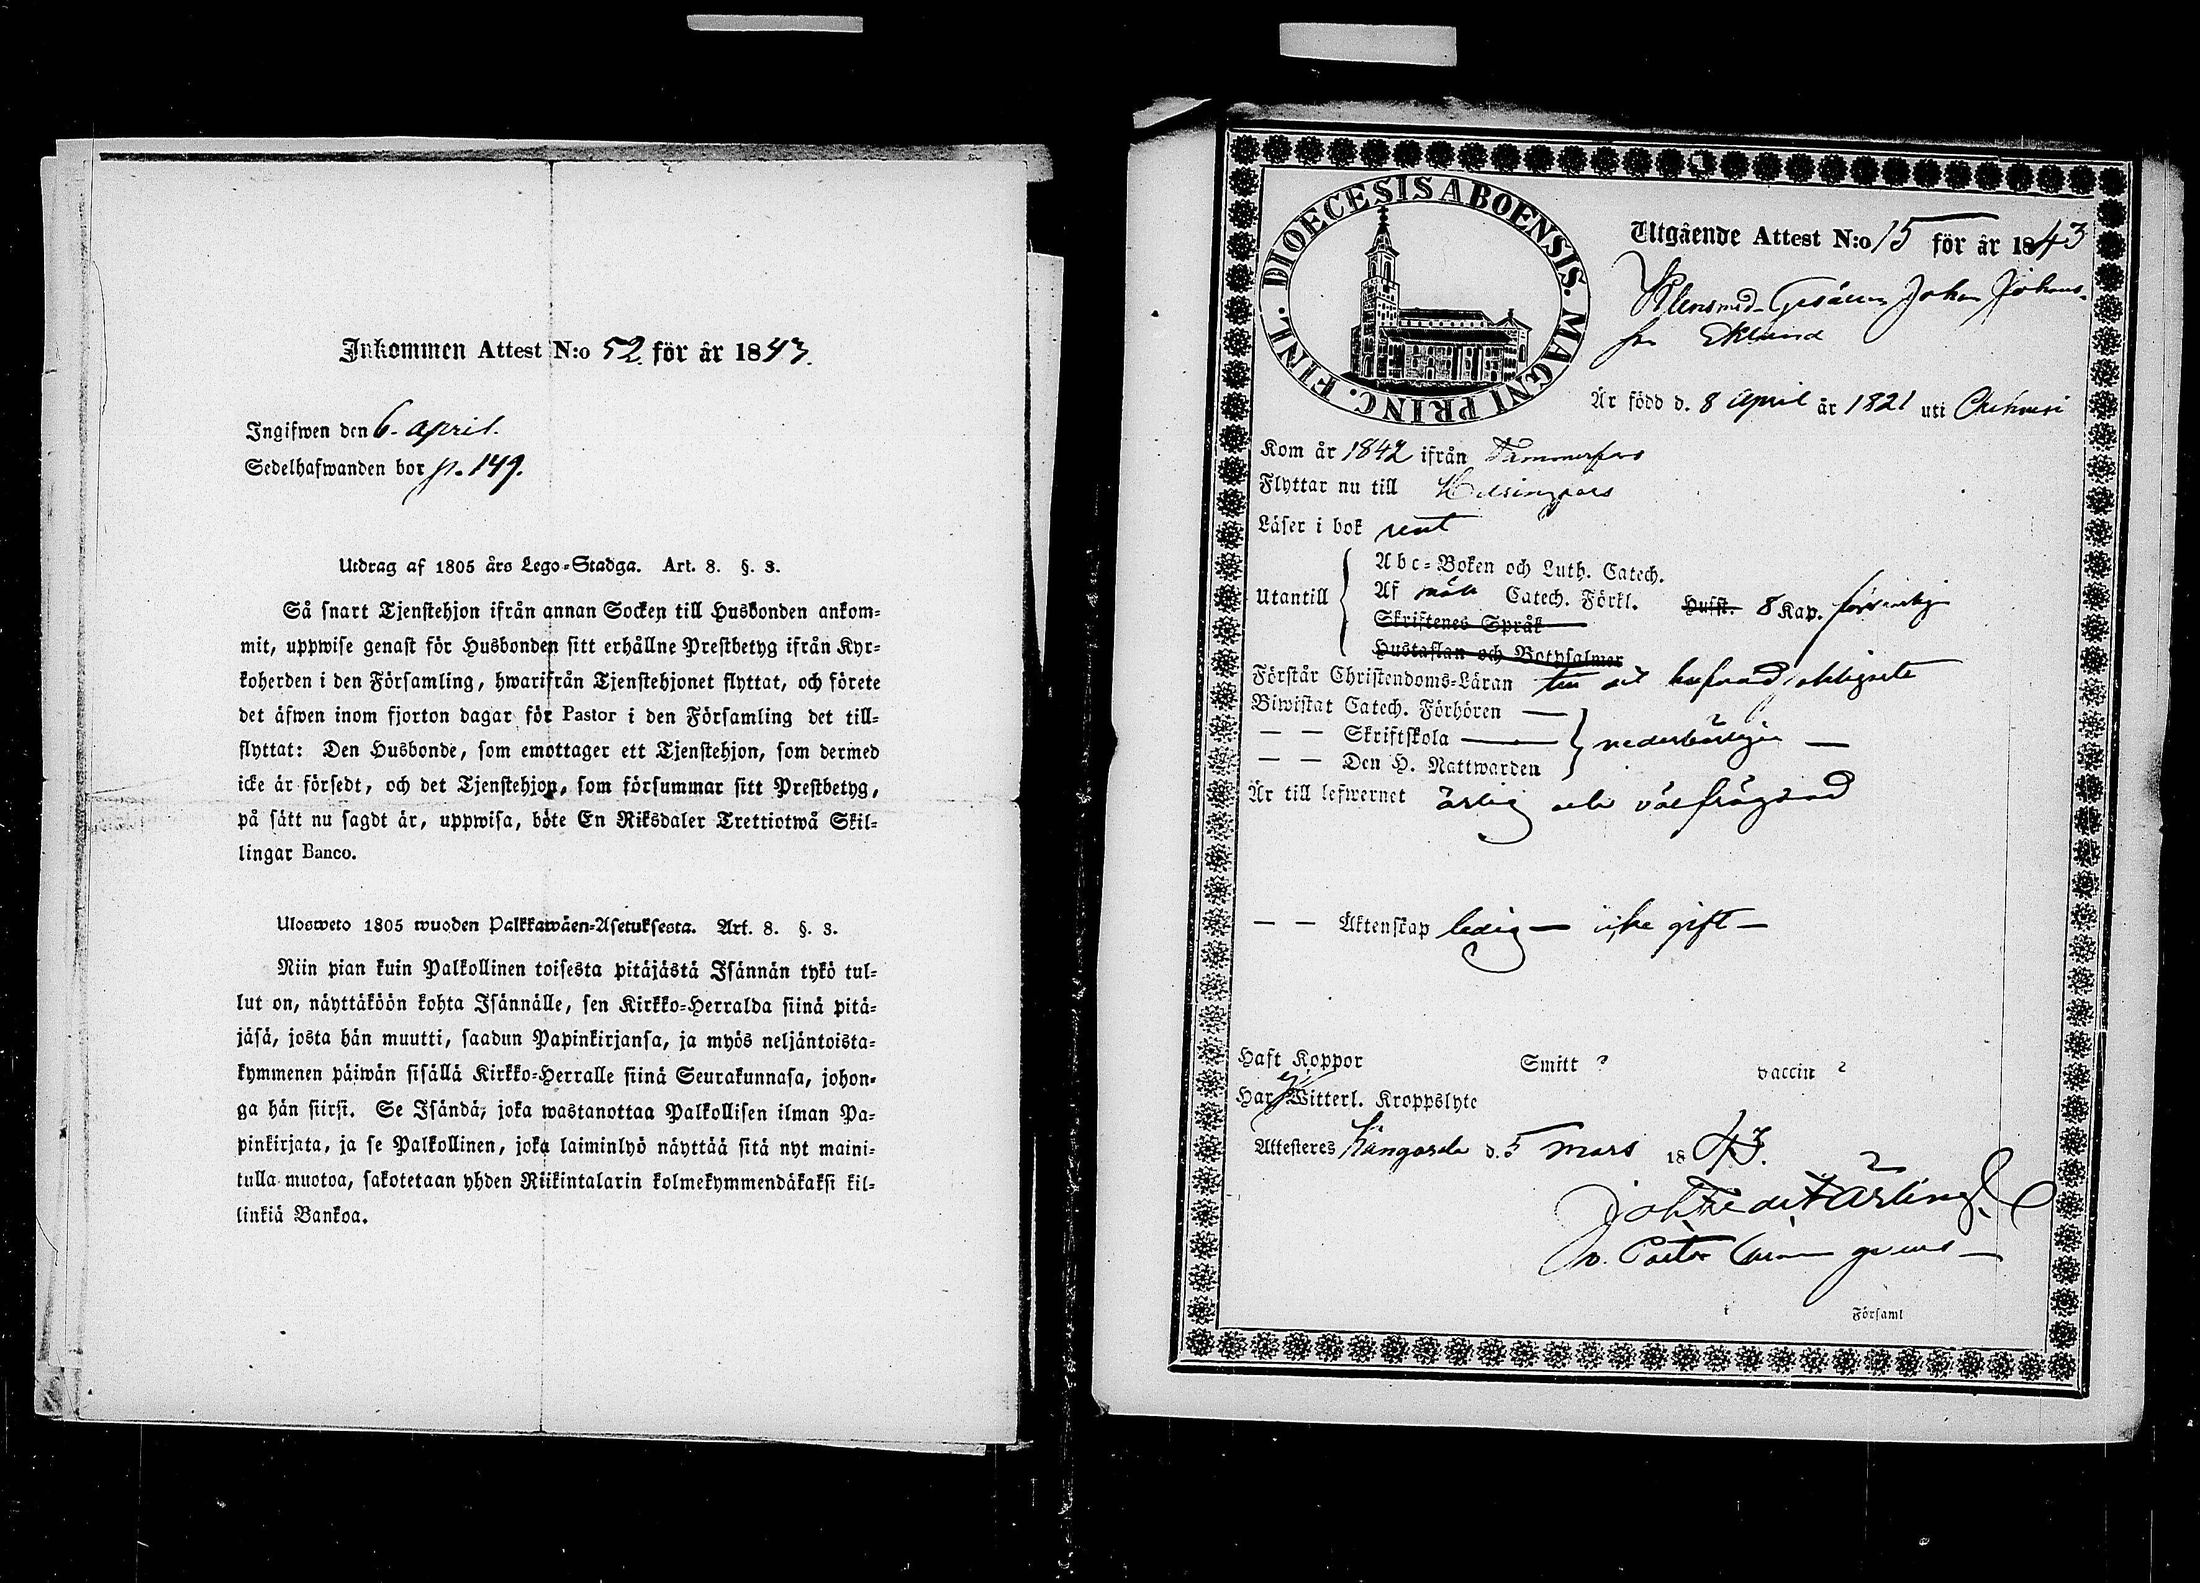 Inkommen Attest N:o 52 för år 1843.
Ingifwen den 6. april.
Sedelhafwanden bor p. 149.
Utdrag af 1805 års Lego-Stadga. Art. 8. §. 3.
Så snart Tjenstehjon ifrån annan Socken till Husbonden ankom-
mit, uppwise genast för Husbonden sitt erhållne Prestbetyg ifrån Kyr-
koherden i den Församling, hwarifrån Tjenstehjonet flyttat, och förete
det äfwen inom fjorton dagar för Pastor i den Församling det till-
flyttat: Den Husbonde, som emottager ett Tjenstehjon, som dermed
icke är försedt, och det Tjenstehjon, som försummar sitt Prestbetyg,
på sätt nu sagdt är, uppwisa, böte En Riksdaler Trettiotwå Skil-
lingar Banco.
Ulosweto 1805 wuoden Palkkawäen-Asetuksesta. Art. 8. §. 3.
Niin pian kuin Palkollinen toisesta pitäjästä Isännän tykö tul-
lut on, näyttäköön kohta Isännälle, sen Kirkko-Herralda siinä pitä-
jäsä, josta hän muutti, saadun Papinkirjansa, ja myös neljäntoista-
kymmenen päiwän sisällä Kirkko-Herralle siinä Seurakunnasa, johon-
ga hän siirsi. Se Isändä, joka wastanottaa Palkollisen ilman Pa-
pinkirjata, ja se Palkollinen, joka laiminlyö näyttää sitä nyt maini-
tulla muotoa, sakotetaan yhden Riikintalarin kolmekymmendäkaksi kil-
linkiä Bankoa.
DIOECESIS ABOENSIS. MAGNI PRINC. FINL.
Utgående Attest N:o 15 för år 1843
Klensmed-Gesällen Johan Johans-
son Eklund
Är född d. 8 April år 1821 uti
Kom år 1842 ifrån Tammerfors
Flyttar nu till Helsingfors
Läser i bok rent
Utantill
Abc-Boken och Luth. Catech.
Af Catech. Förkl. Husst. 8 Kap. försvarlig
Skriftenes Språk
Hustaflan och Botpsalmer
Förstår Christendoms-Läran till
Biwistat Catech. Förhören —
— — Skriftskola — vederbörligen —
— — Den H. Nattwarden
Är till lefwernet ärlig och välfrägdad
— — Äktenskap ledig — icke gift —
Haft Koppor Smitt ? vaccin ?
Har ej Witterl. Kroppslyte
Attesteres Kangasala d. 5 mars 1843.
Joh Fredr Färling
v. Pastor
i Församl